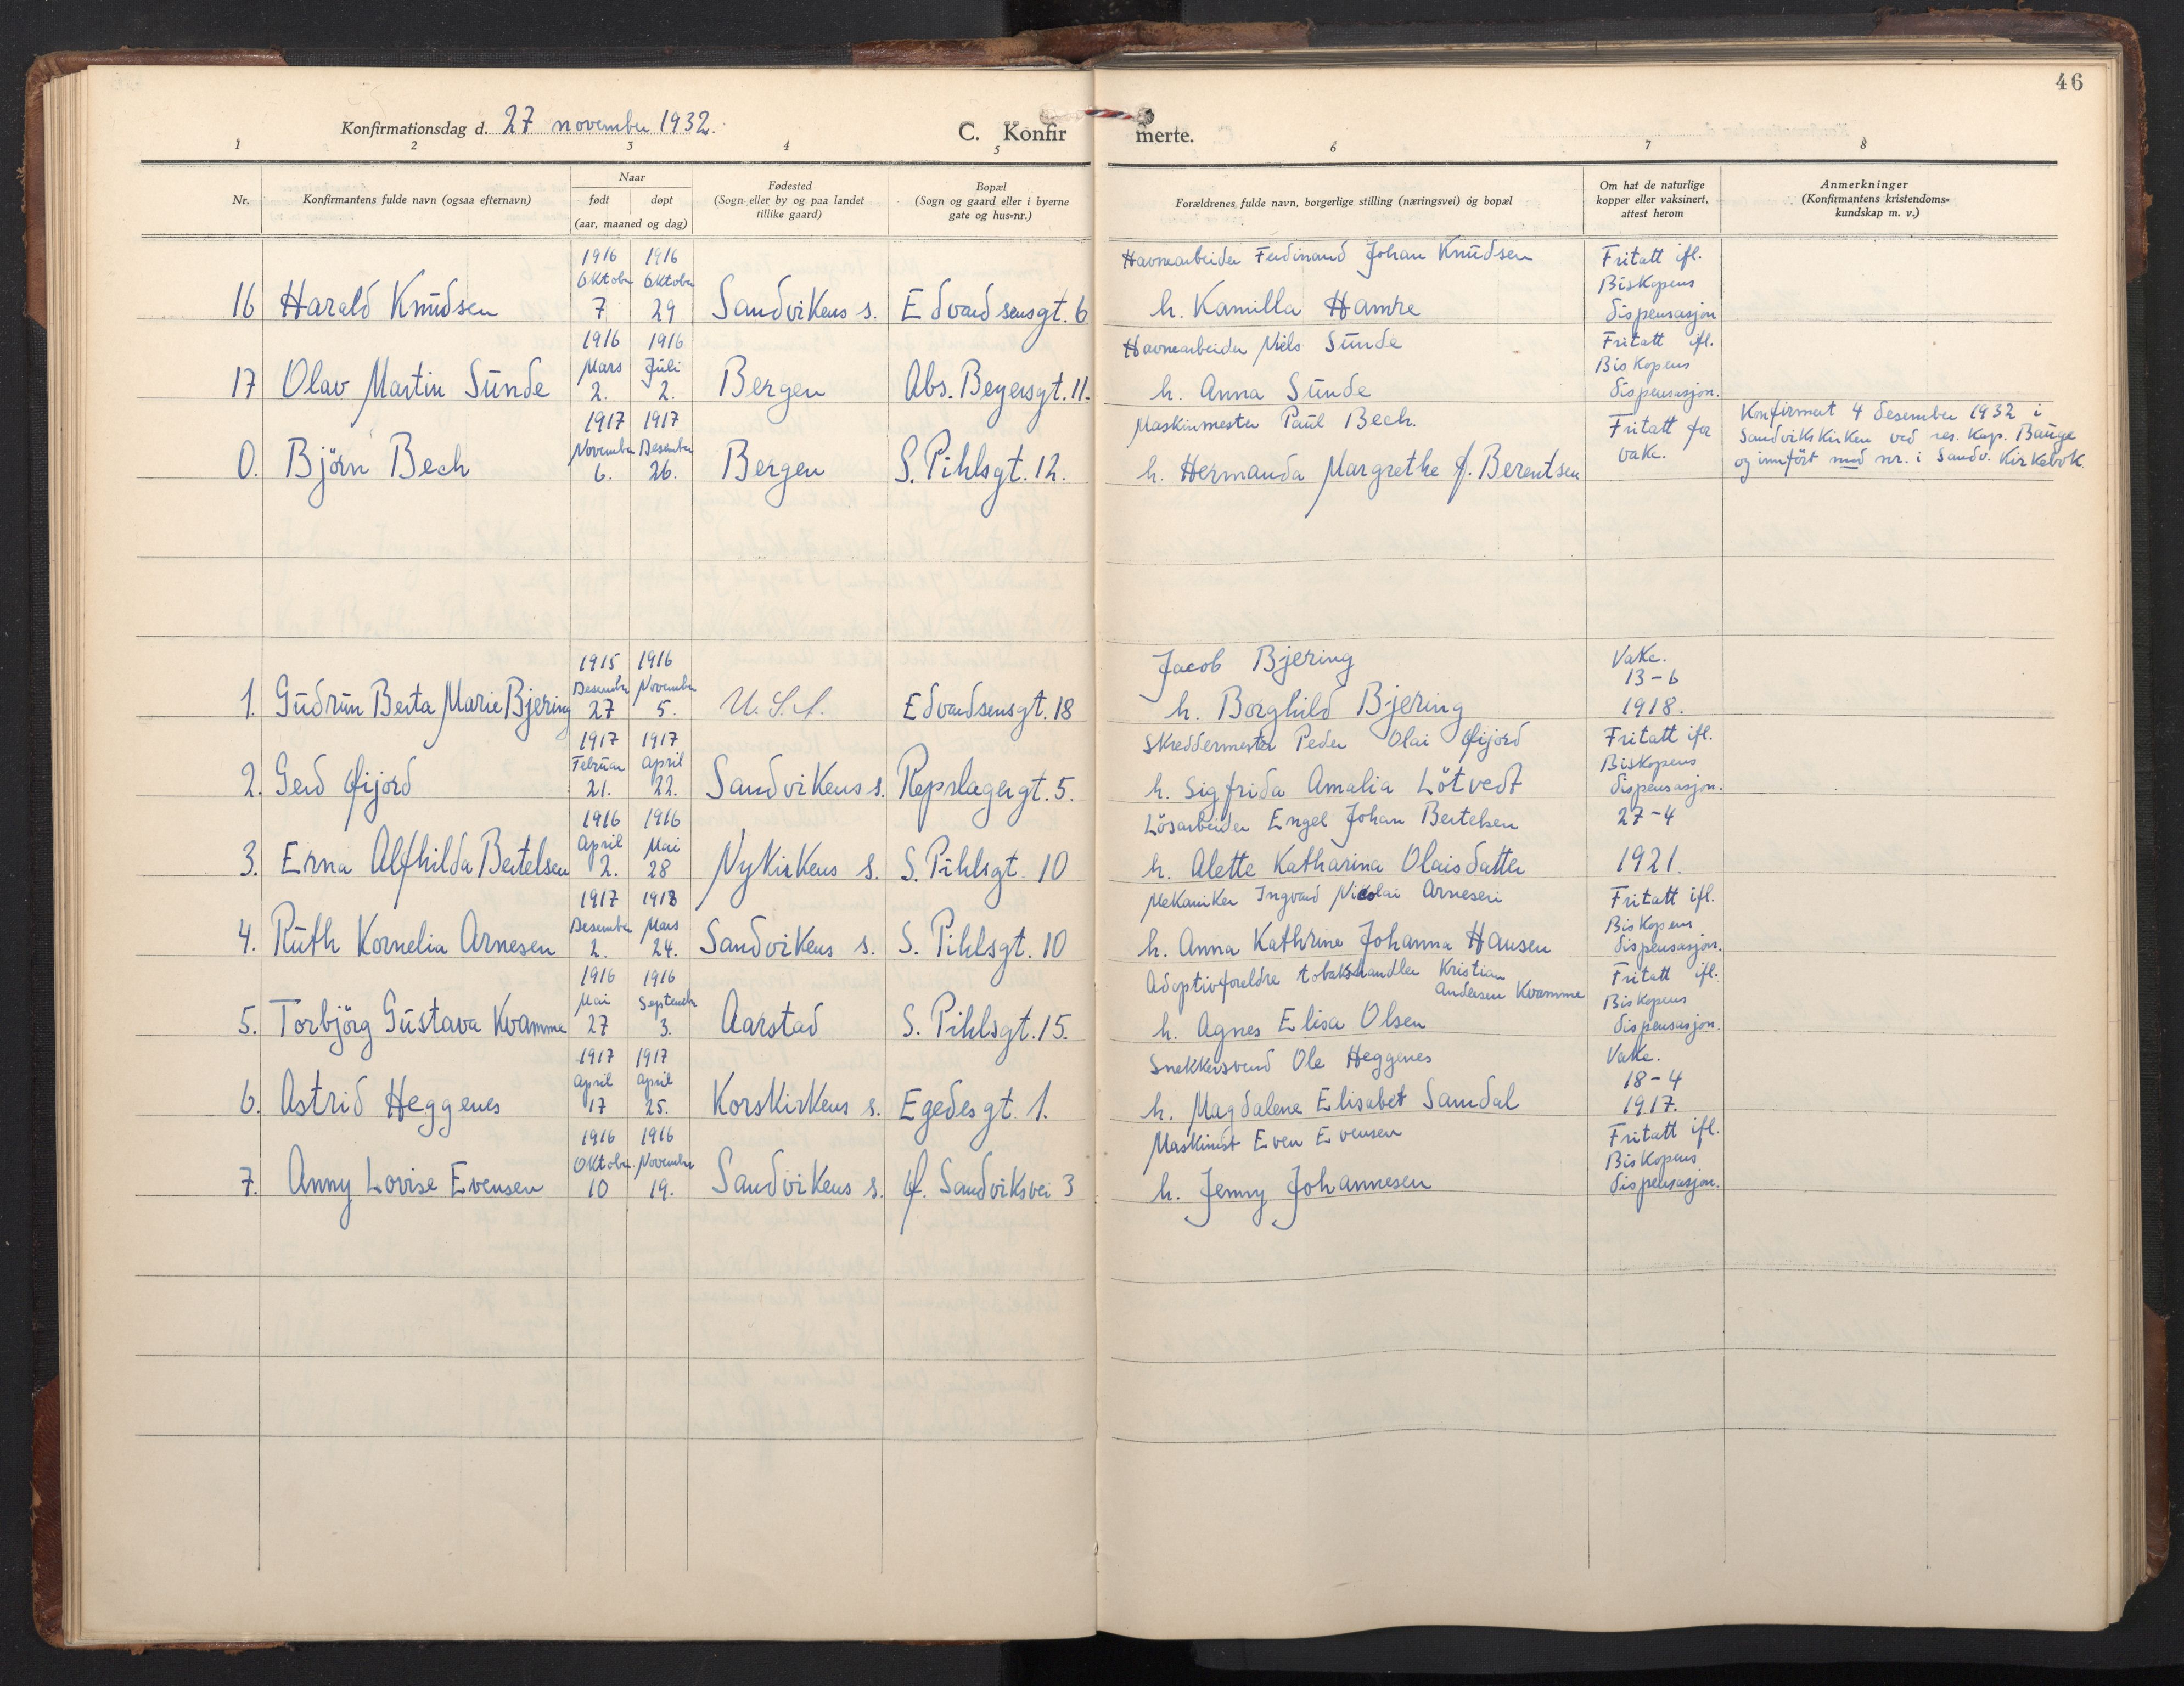 46
Konfirmationsdag d. 27 november 1932.
C. Konfir merte.
1 2 3 4 5 6 7 8
Nr.
Konfirmantens fulde navn (ogsaa efternavn)
Naar
født døpt
(aar, maaned og dag)
Fødested
(Sogn eller by og paa landet
tillike gaard)
Bopæl
(Sogn og gaard eller i byerne
gate og hus-nr.)
Forældrenes fulde navn, borgerlige stilling (næringsvei) og bopæl
Om hat de naturlige
kopper eller vaksinert,
attest herom
Anmerkninger
(Konfirmantens kristendoms-
kundskap m. v.)
1916 1916 Havnearbeider Ferdinand Johan Knudsen Fritatt ifl.
Oktober Oktober Biskopens
16 Harald Knudsen 7 29 Sandvikens s. Edvardsensgt. 6 h. Kamilla Hamre dispensasjon
1916 1916 Havnearbeider Niels Sunde Fritatt ifl.
Mars Juli Biskopens
17 Olav Martin Sunde 2. 2. Bergen Abs. Beyersgt. 11. h. Anna Sunde dispensasjon.
1917 1917 Maskinmester Paul Bech. Fritatt for Konfirmert 4 desember 1932 i
November Desember vakc. Sandvikskirken ved res. kap. Bauge
0. Björn Bech 6. 26. Bergen S. Pihlsgt. 12. h. Hermanda Margrethe f. Berentsen og innfört med nr. i Sandv. Kirkebok.
1915 1916 Jacob Bjering Vakc.
Desember November 13-6
1. Gudrun Berta Marie Bjering 27 5. U.S.A. Edvardsensgt. 18 h. Borghild Bjering 1918.
1917 1917 Skreddermester Peder Olai Øijord Fritatt ifl.
Februar April Biskopens
2. Gerd Øijord 21. 22. Sandvikens s. Repslagergt. 5. h. Sigfrida Amalia Lötvedt dispensasjon.
1916 1916 Lösarbeider Engel Johan Bertelsen 27-4
April Mai
3. Erna Alfhilda Bertelsen 2. 28 Nykirkens s. S. Pihlsgt. 10 h. Alette Katharina Olaisdatter 1921.
1917 1918 Mekaniker Ingvard Nicolai Arnesen Fritatt ifl.
Desember Mars Biskopens
4. Ruth Kornelia Arnesen 2. 24. Sandvikens s. S. Pihlsgt. 10 h. Anna Kathrine Johanna Hansen dispensasjon.
1916 1916 Adoptivforeldre tobakshandler Kristian Fritatt ifl.
Mai September Andersen Kvamme Biskopens
5. Torbjörg Gustava Kvamme 27 3. Aarstad S. Pihlsgt. 15. h. Agnes Elisa Olsen dispensasjon.
1917 1917 Snekkersvend Ole Heggenes Vakc.
April April 18-4
6. Astrid Heggenes 17 25. Korskirkens s. Egedesgt. 1. h. Magdalene Elisabet Samdal 1917.
1916 1916 Maskinist Even Evensen Fritatt ifl.
Oktober November Biskopens
7. Anny Lovise Evensen 10 19. Sandvikens s. Ø. Sandviksvei 3 h. Jenny Johannesen dispensasjon.